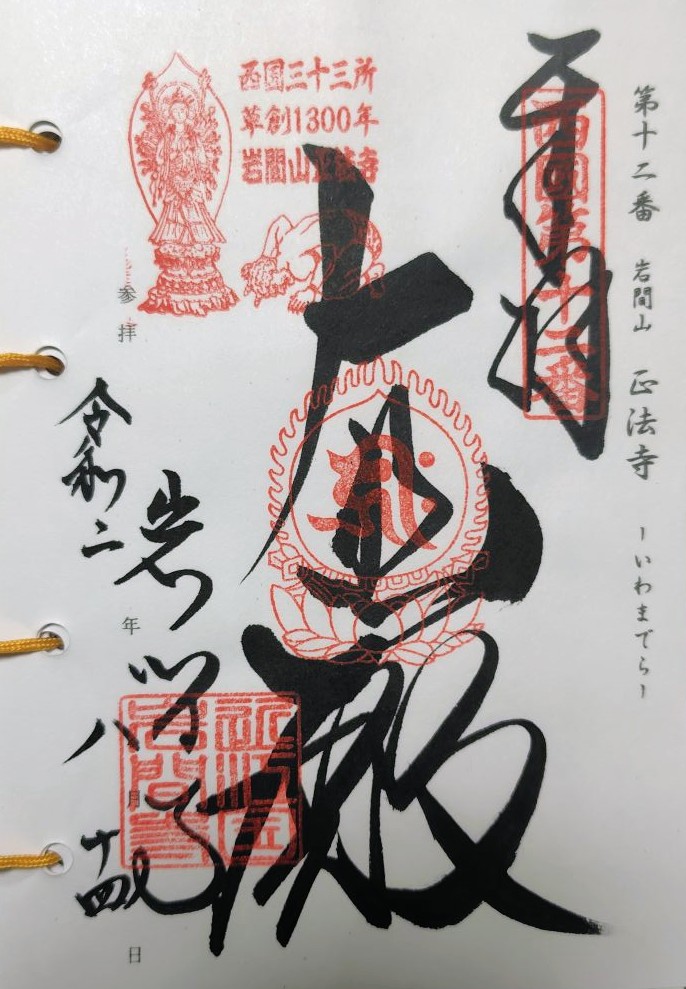 第十二番 岩間山 正法寺 －いわまでら－
奉拝
西国第十二番
大悲殿
西国三十三所
草創1300年
岩間山正法寺
参拝
岩間寺
令和二年八月十四日